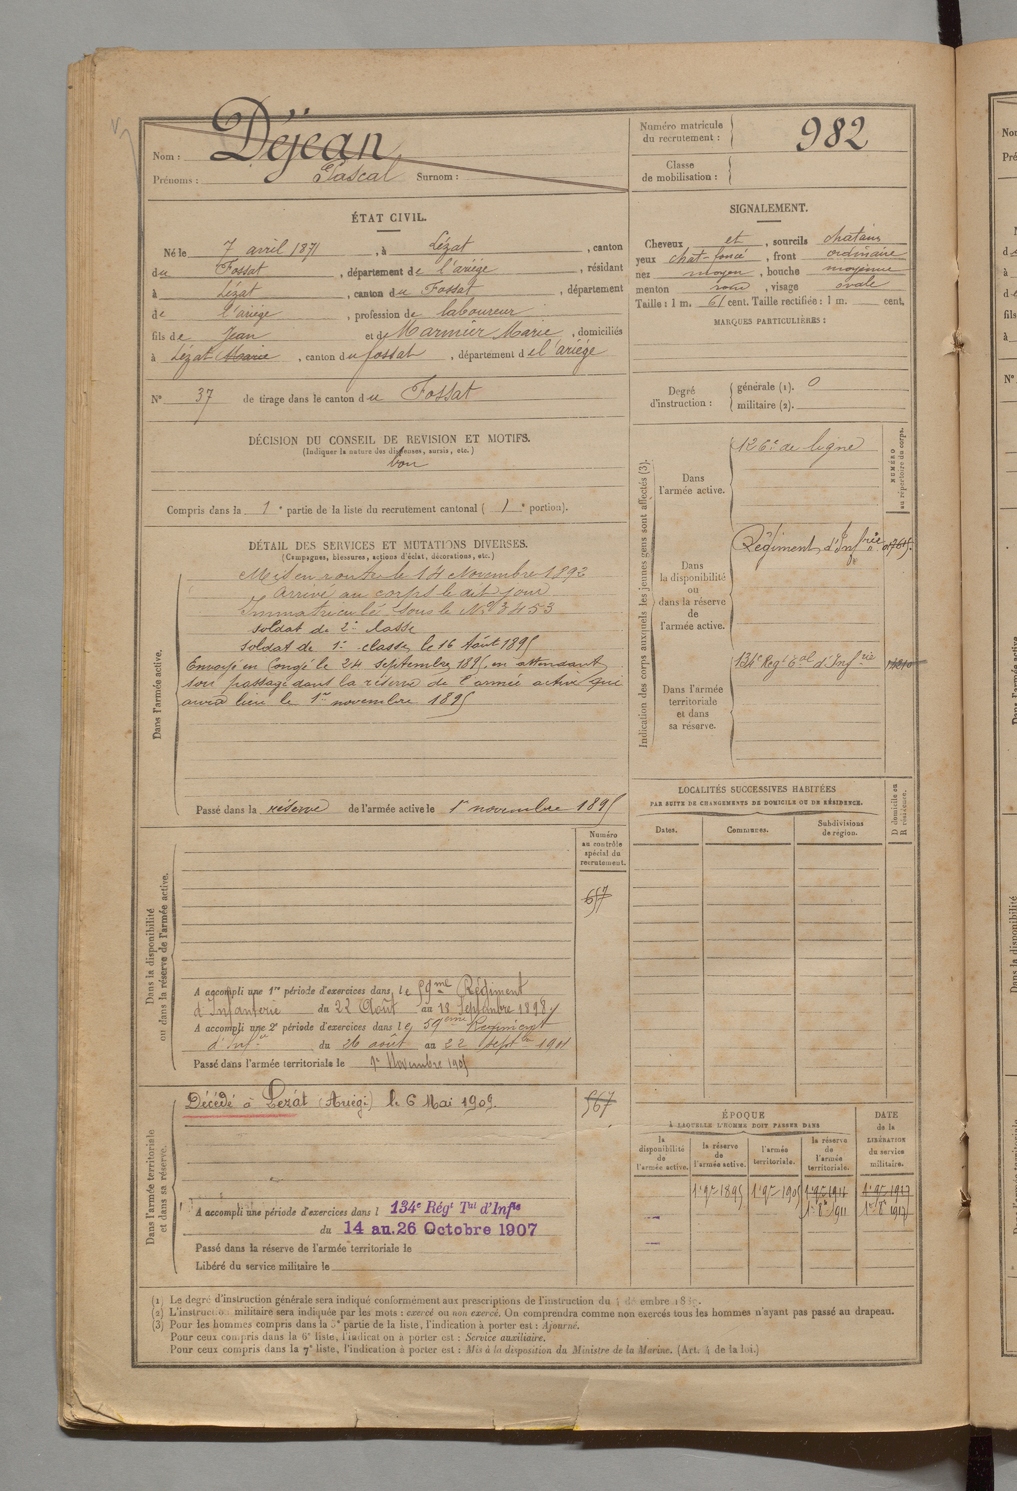 Nom : Déjean
Prénoms : Pascal Surnom :
Numéro matricule du recrutement : 982
Classe de mobilisation :
ÉTAT CIVIL.
Né le 7 avril 1871, à Lézat, canton
du Fossat, département de l'ariège, résidant
à Lézat, canton du Fossat, département
de l'ariège, profession de laboureur
fils de Jean et de Marmier Marie, domiciliés
à Lézat Marie, canton du fossat, département de l'ariège
N° 37 de tirage dans le canton du Fossat
SIGNALEMENT.
Cheveux et, sourcils chatains
yeux chat-foncé, front ordinaire
nez moyen, bouche moyenne
menton rond, visage ovale
Taille : 1 m. 61 cent. Taille rectifiée : 1 m. cent.
MARQUES PARTICULIÈRES :
Degré d'instruction : générale (1). 0
militaire (2).
DÉCISION DU CONSEIL DE REVISION ET MOTIFS.
(Indiquer la nature des dispenses, sursis, etc.)
bon
Compris dans la 1e partie de la liste du recrutement cantonal ( 1e portion).
DÉTAIL DES SERVICES ET MUTATIONS DIVERSES.
(Campagnes, blessures, actions d'éclat, décorations, etc.)
Dans l'armée active.
Mis en route le 14 Novembre 1892
Arrivé au corps le dit jour
Immatriculé sous le N° 3453
soldat de 2e classe
Soldat de 1e classe le 16 Août 1895
Envoyé en Congé le 24 septembre 1895 en attendant
son passage dans la réserve de l'armée active qui
aura lieu le 1er novembre 1895
Passé dans la réserve de l'armée active le 1er novembre 1895
Indication des corps auxquels les jeunes gens sont affectés (3).
NUMÉRO au répertoire du corps.
Dans l'armée active. 126e de ligne
Dans la disponibilité ou dans la réserve de l'armée active.
Régiment d'Infrie
Dans l'armée territoriale et dans sa réserve.
134e Regt Tal d'Infrie
LOCALITÉS SUCCESSIVES HABITÉES
PAR SUITE DE CHANGEMENTS DE DOMICILE OU DE RÉSIDENCE.
Dates. Communes. Subdivisions de région. D domicile ou R résidence.
Dans la disponibilité ou dans la réserve de l'armée active.
Numéro au contrôle spécial du recrutement.
657
A accompli une 1re période d'exercices dans le 59me Régiment
d'Infanterie du 22 Août au 18 Septembre 1898
A accompli une 2e période d'exercices dans le 59eme Régiment
d'Infie du 26 août au 22 septbre 1901
Passé dans l'armée territoriale le 1er Novembre 1905
Dans l'armée territoriale et dans sa réserve.
Décédé à Lezat (Ariège) le 6 Mai 1909.
567
A accompli une période d'exercices dans l 134e Régt Tal d'Infie
du 14 au 26 Octobre 1907
Passé dans la réserve de l'armée territoriale le
Libéré du service militaire le
ÉPOQUE
À LAQUELLE L'HOMME DOIT PASSER DANS
la disponibilité de l'armée active. la réserve de l'armée active. l'armée territoriale. la réserve de l'armée territoriale. DATE de la LIBÉRATION du service militaire.
1er 9bre 1895 1er 9bre 1905 1er 9bre 1911 1er 9bre 1917
1er 8bre 1911 1er 8bre 1917
(1) Le degré d'instruction générale sera indiqué conformément aux prescriptions de l'instruction du 4 décembre
(2) L'instruction militaire sera indiquée par les mots : exercé ou non exercé. On comprendra comme non exercés tous les hommes n'ayant pas passé au drapeau.
(3) Pour les hommes compris dans la 5e partie de la liste, l'indication à porter est : Ajourné.
Pour ceux compris dans la 6e liste, l'indication à porter est : Service auxiliaire.
Pour ceux compris dans la 7e liste, l'indication à porter est : Mis à la disposition du Ministre de la Marine. (Art. 4 de la loi.)